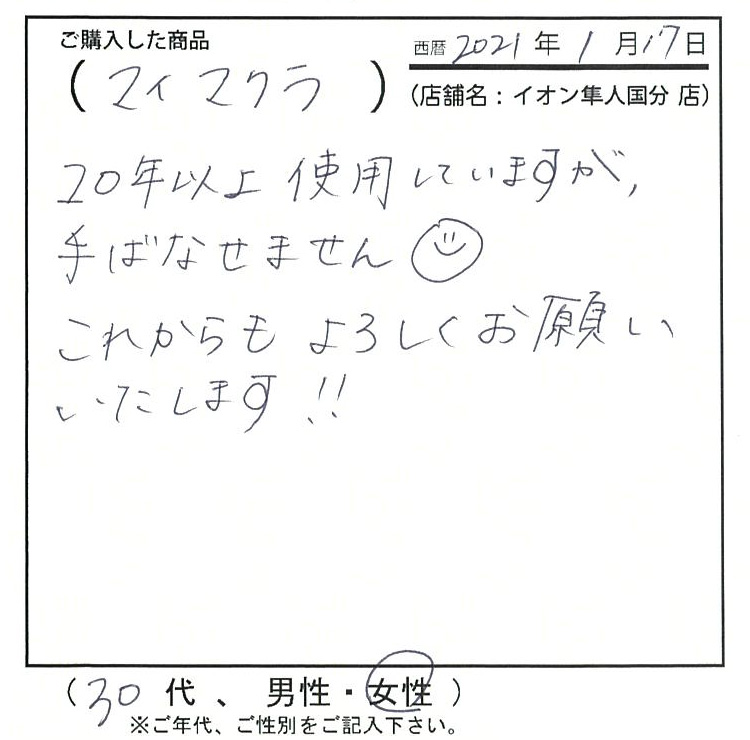 ご購入した商品
西暦 2021年 1月17日
(マイマクラ)
(店舗名：イオン隼人国分 店)
20年以上使用していますが,
手ばなせません
これからもよろしくお願い
いたします!!
(30代、男性・女性)
※ご年代、ご性別をご記入下さい。